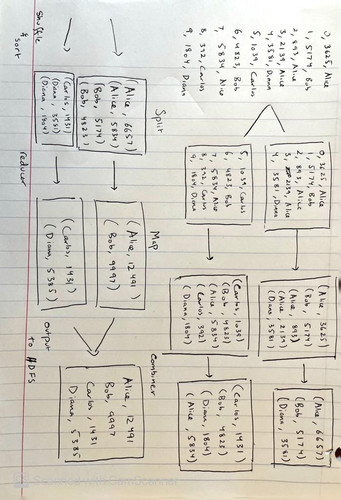 0, 3625, Alice
1, 5174, Bob
2, 893, Alice
3, 2139, Alice
4, 3581, Diana
5, 1039, Carlos
6, 4823, Bob
7, 5834, Alice
8, 392, Carlos
9, 1804, Diana
Split
0, 3625, Alice
1, 5174, Bob
2, 893, Alice
3, 2139, Alice
4, 3581, Diana
5, 1039, Carlos
6, 4823, Bob
7, 5834, Alice
8, 392, Carlos
9, 1804, Diana
Map
(Alice, 3625)
(Bob, 5174)
(Alice, 893)
(Alice, 2139)
(Diana, 3581)
(Carlos, 1039)
(Bob, 4823)
(Alice, 5834)
(Carlos, 392)
(Diana, 1804)
Combiner
(Alice, 6657)
(Bob, 5174)
(Diana, 3581)
(Carlos, 1431)
(Bob, 4823)
(Diana, 1804)
(Alice, 5834)
Shuffle
& sort
(Alice, 6657)
(Alice, 5834)
(Bob, 5174)
(Bob, 4823)
(Carlos, 1431)
(Diana, 3581)
(Diana, 1804)
reducer
(Alice, 12491)
(Bob, 9997)
(Carlos, 1431)
(Diana, 5385)
output
to HDFS
Alice, 12491
Bob, 9997
Carlos, 1431
Diana, 5385